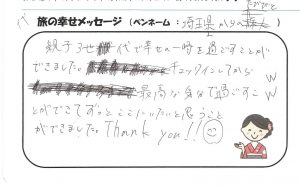 たびびと
旅の幸せメッセージ（ペンネーム：埼玉県からの旅人）
親子3世代で幸せな一時を過ごすことが
できました。チェックインしてから
最高な気分で過ごすこ
とができてずっとここにいたいと思うこと
ができました。Thank you!!